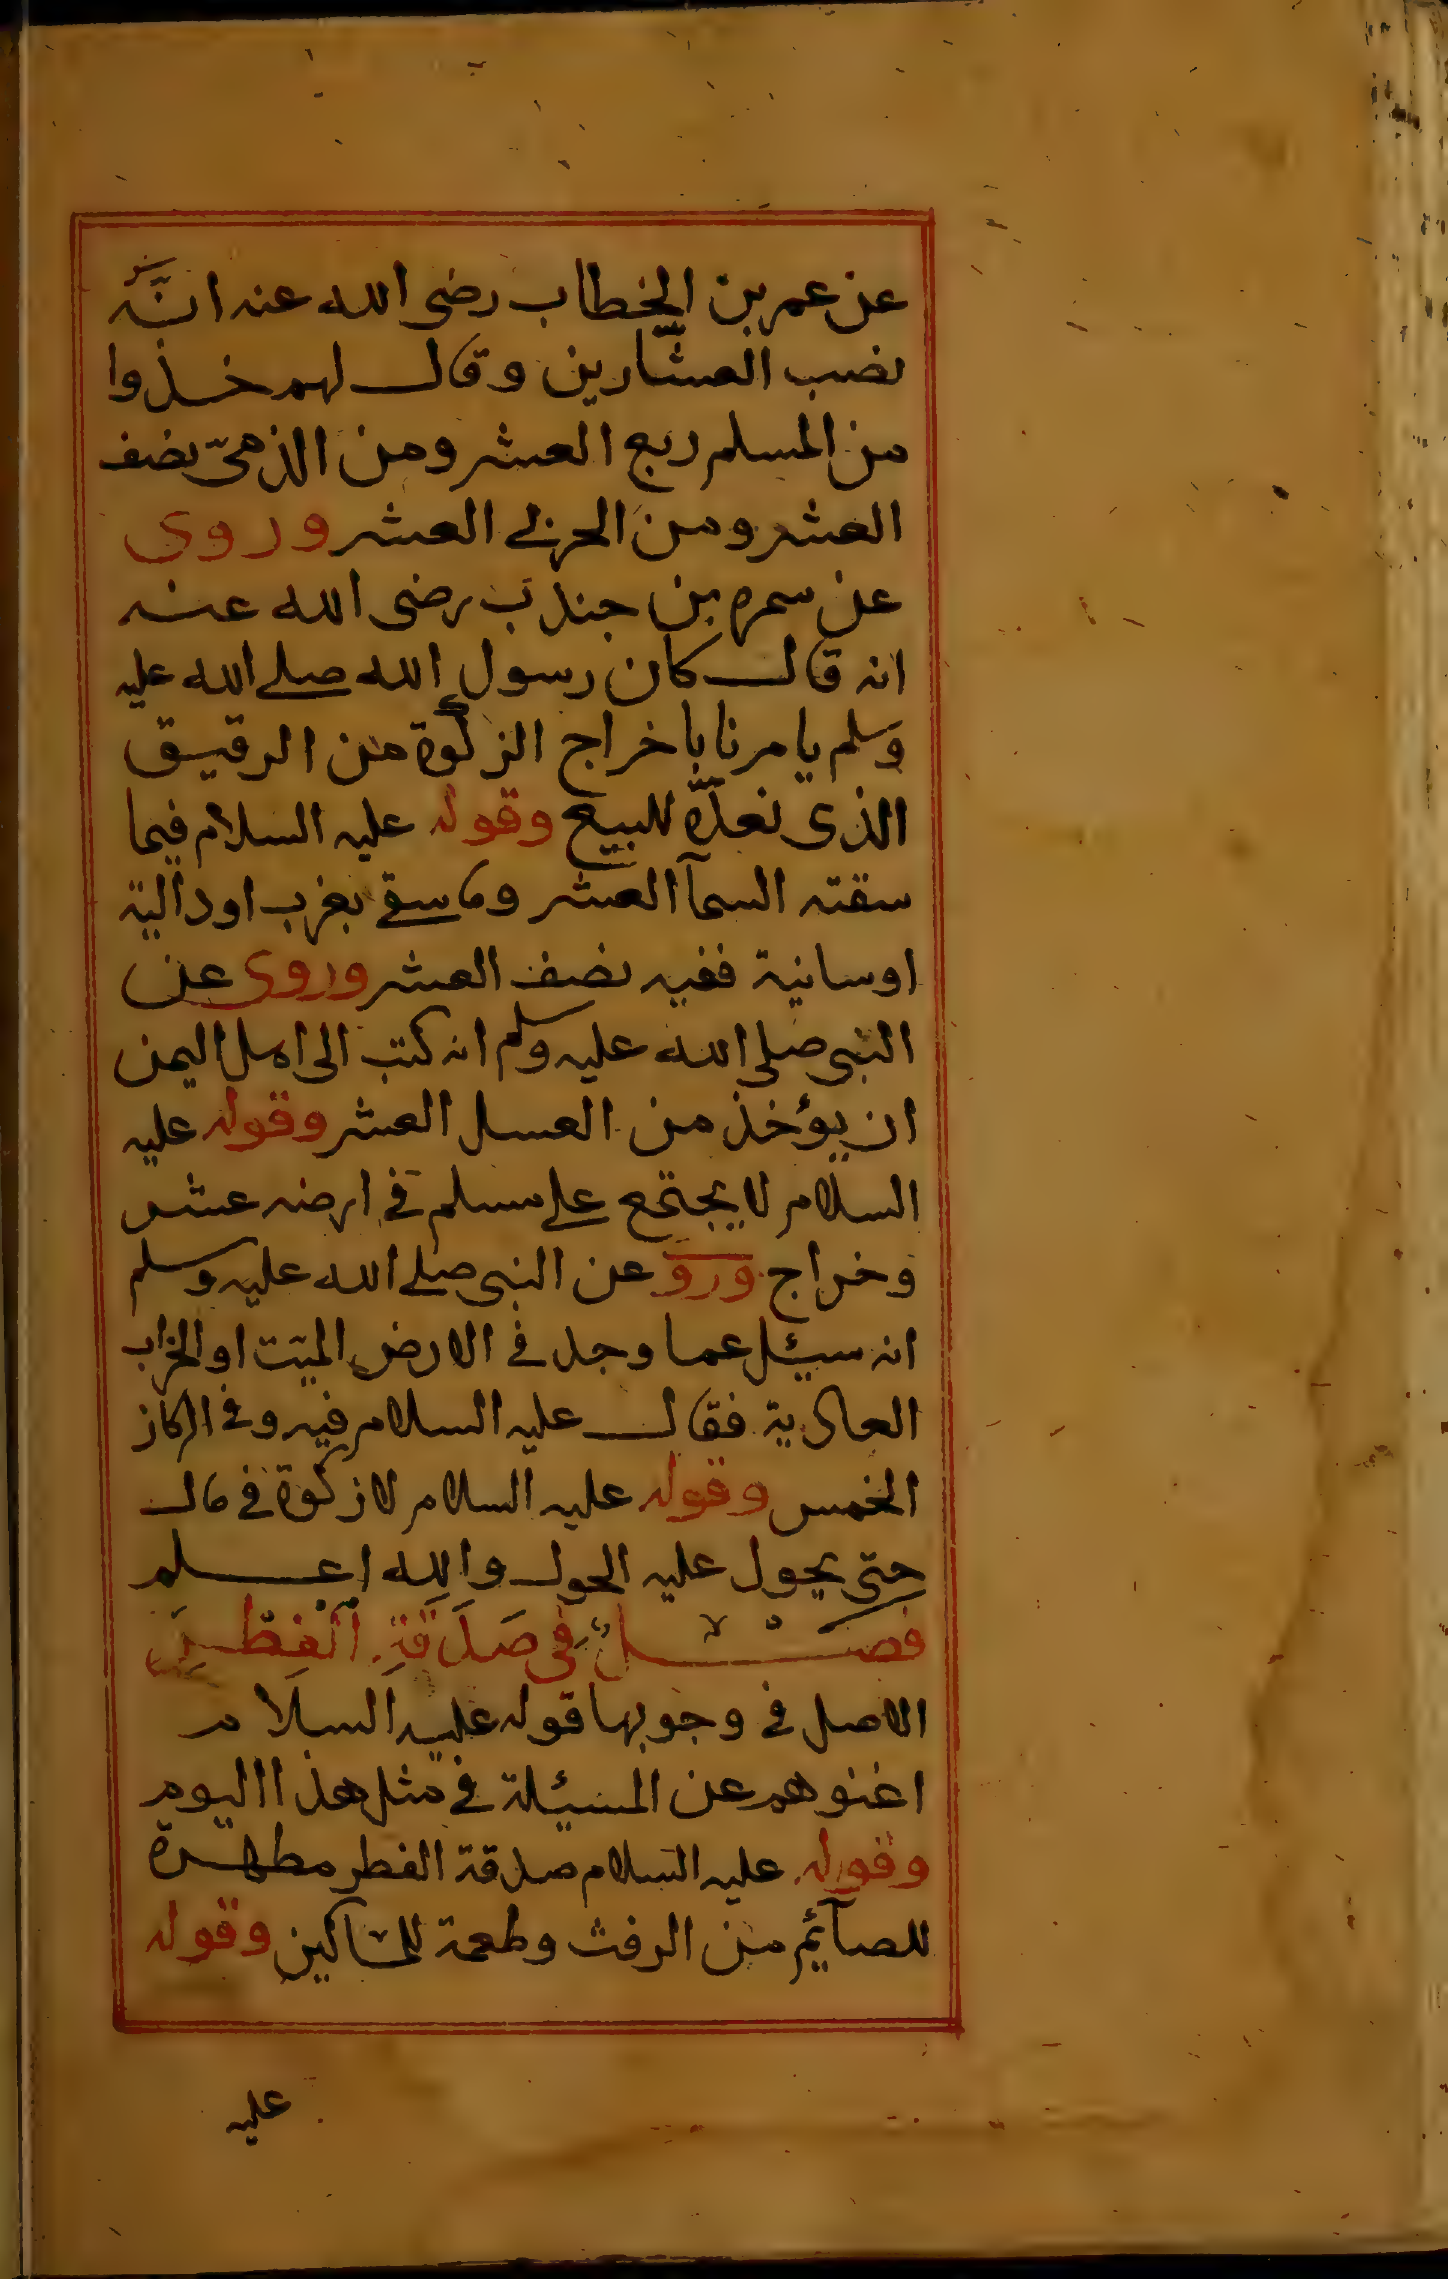 عن عمر بن الخطاب رضى الله عنه انّه
نصب العشّارين وقال لهم خذوا
من المسلم ربع العشر ومن الذمىّ نصف
العشر ومن الحربى العشر وروى
عن سمره بن جندب رضى الله عنه
انه قال كان رسول الله صلى الله عليه
وسلم يامرنا باخراج الزكوة من الرقيق
الذى نعدّه للبيع وقوله عليه السلام فيما
سقته السمآ العشر وما سقى بغرب او دالية
او سانية ففيه نصف العشر وروى عن
النبى صلى الله عليه وسلم انه كتب الى اهل اليمن
ان يؤخذ من العسل العشر وقوله عليه
السلام لا يجتمع على مسلم فى ارضه عشر
وخراج ورو عن النبى صلى الله عليه وسلم
انه سيئل عما وجد فى الارض الميت او الخراب
العادية فقال عليه السلام فيه وفى الركاز
الخمس وقوله عليه السلام لا زكوة فى مال
حتى يحول عليه الحول والله اعلم
فصل فى صدقة الفطر
الاصل فى وجوبها قوله عليه السلام
اغنوهم عن المسيئلة فى مثل هذا اليوم
وقوله عليه السلام صدقة الفطر مطهرة
للصآئم من الرفث وطعمة للمساكين وقوله
عليه